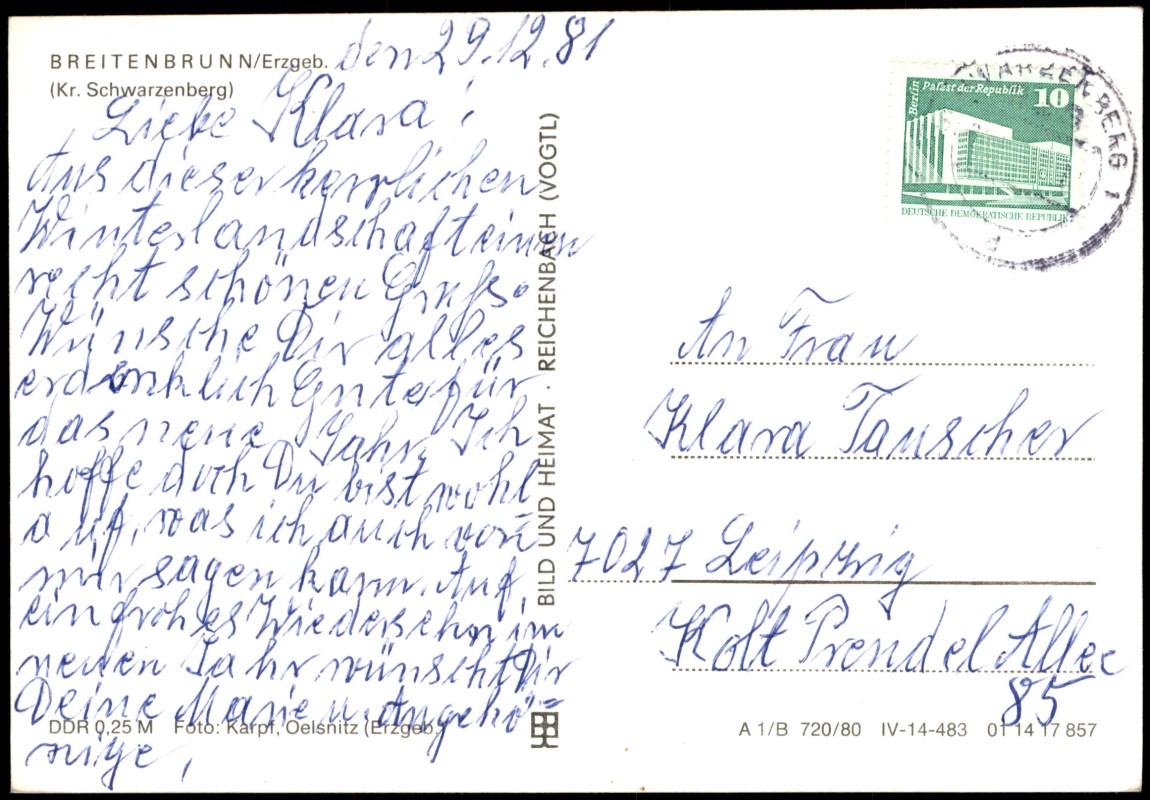 BREITENBRUNN/Erzgeb.
(Kr. Schwarzenberg)
den 29.12.81
Liebe Klara!
Aus dieser herrlichen
Winterlandschaft einen
recht schönen Gruß.
Wünsche Dir alles
erdenklich Gute für
das neue Jahr. Ich
hoffe doch Du bist wohl
auf, was ich auch von
mir sagen kann. Auf
ein frohes Wiedersehn im
neuen Jahr wünscht Dir
Deine Marie u. Angehö=
rige,
DDR 0,25 M Foto: Karpf, Oelsnitz (Erzgeb.)
BILD UND HEIMAT · REICHENBACH (VOGTL)
Berlin
Palast der Republik 10
DEUTSCHE DEMOKRATISCHE REPUBLIK
SCHWARZENBERG 1
An Frau
Klara Tauscher
7027 Leipzig
Kolt Prendel Allee
85
A 1/B 720/80 IV-14-483 01 14 17 857